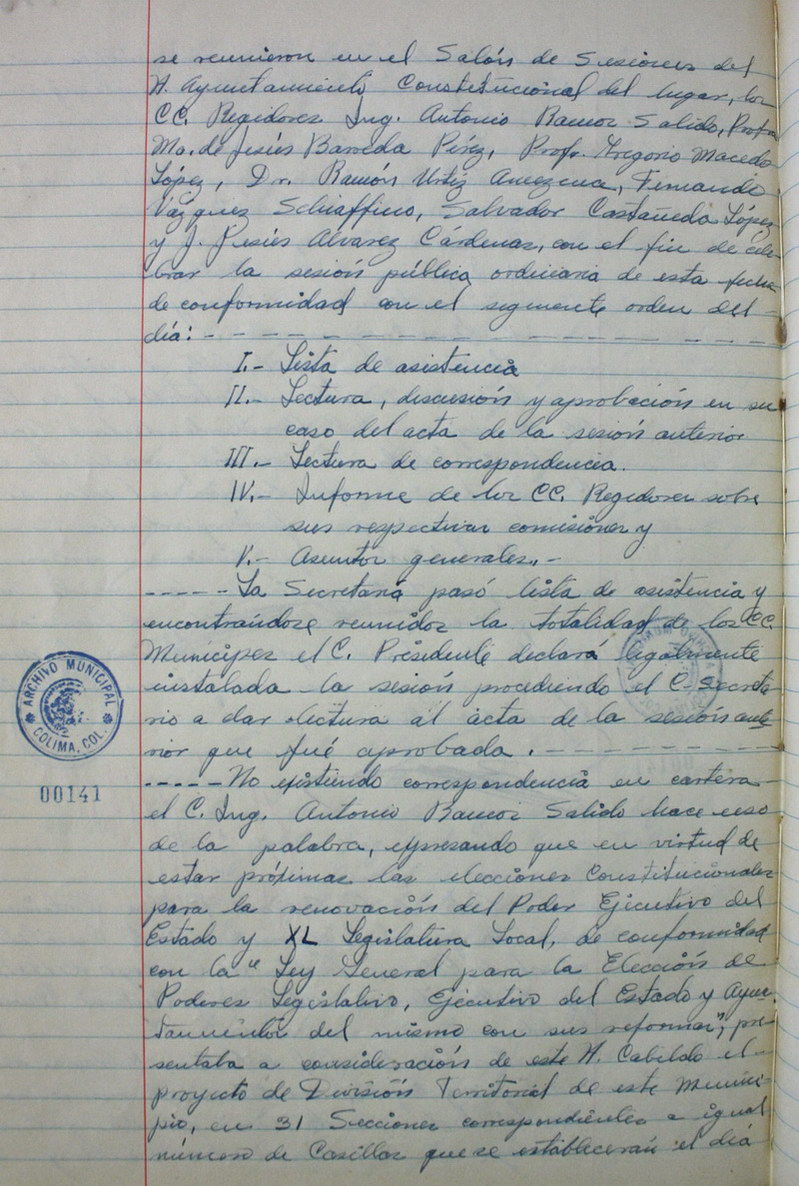 se reunieron en el Salón de Sesiones del
H. Ayuntamiento Constitucional del lugar, los
CC. Regidores Ing. Antonio Ramos Salido, Profra
Ma. de Jesús Barreda Pérez, Profr. Gregorio Macedo
López, Dr. Ramón Urtiz Amezcua, Fernando
Vázquez Schiaffino, Salvador Castañeda López
y J. Jesús Alvarez Cárdenas, con el fin de cele-
brar la sesión pública ordinaria de esta fecha
de conformidad con el siguiente orden del -
día: - - - - - - - - - - - - - - - - - -
I.- Lista de asistencia
II.- Lectura, discusión y aprobación en su
caso del acta de la sesión anterior
III.- Lectura de correspondencia.
IV.- Informe de los CC. Regidores sobre
sus respectivas comisiones y
V.- Asuntos generales.-
- - - - - La Secretaría pasó lista de asistencia y
encontrándose reunidos la totalidad de los CC.
Munícipes el C. Presidente declará legalmente
instalada la sesión procediendo el C. Secreta
rio a dar lectura al acta de la sesión ante
rior que fué aprobada. - - - - - - - - - -
- - - - - No existiendo correspondencia en cartera -
el C. Ing. Antonio Ramos Salido hace uso
de la palabra, expresando que en virtud de
estar próximas las elecciones Constitucionales
para la renovación del Poder Ejecutivo del
Estado y XL Legislatura Local, de conformidad
con la "Ley General para la Elección de
Poderes Legislativo, Ejecutivo del Estado y Ayun-
tamientos del mismo con sus reformas", pre-
sentaba a consideración de este H. Cabildo el -
proyecto de División Territorial de este Munici-
pio, en 31 Secciones correspondientes a igual
número de Casillas que se establecerán el día
ARCHIVO MUNICIPAL
COLIMA, COL.
00141